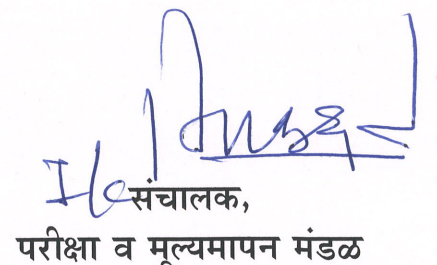 I/c संचालक,
परीक्षा व मूल्यमापन मंडळ